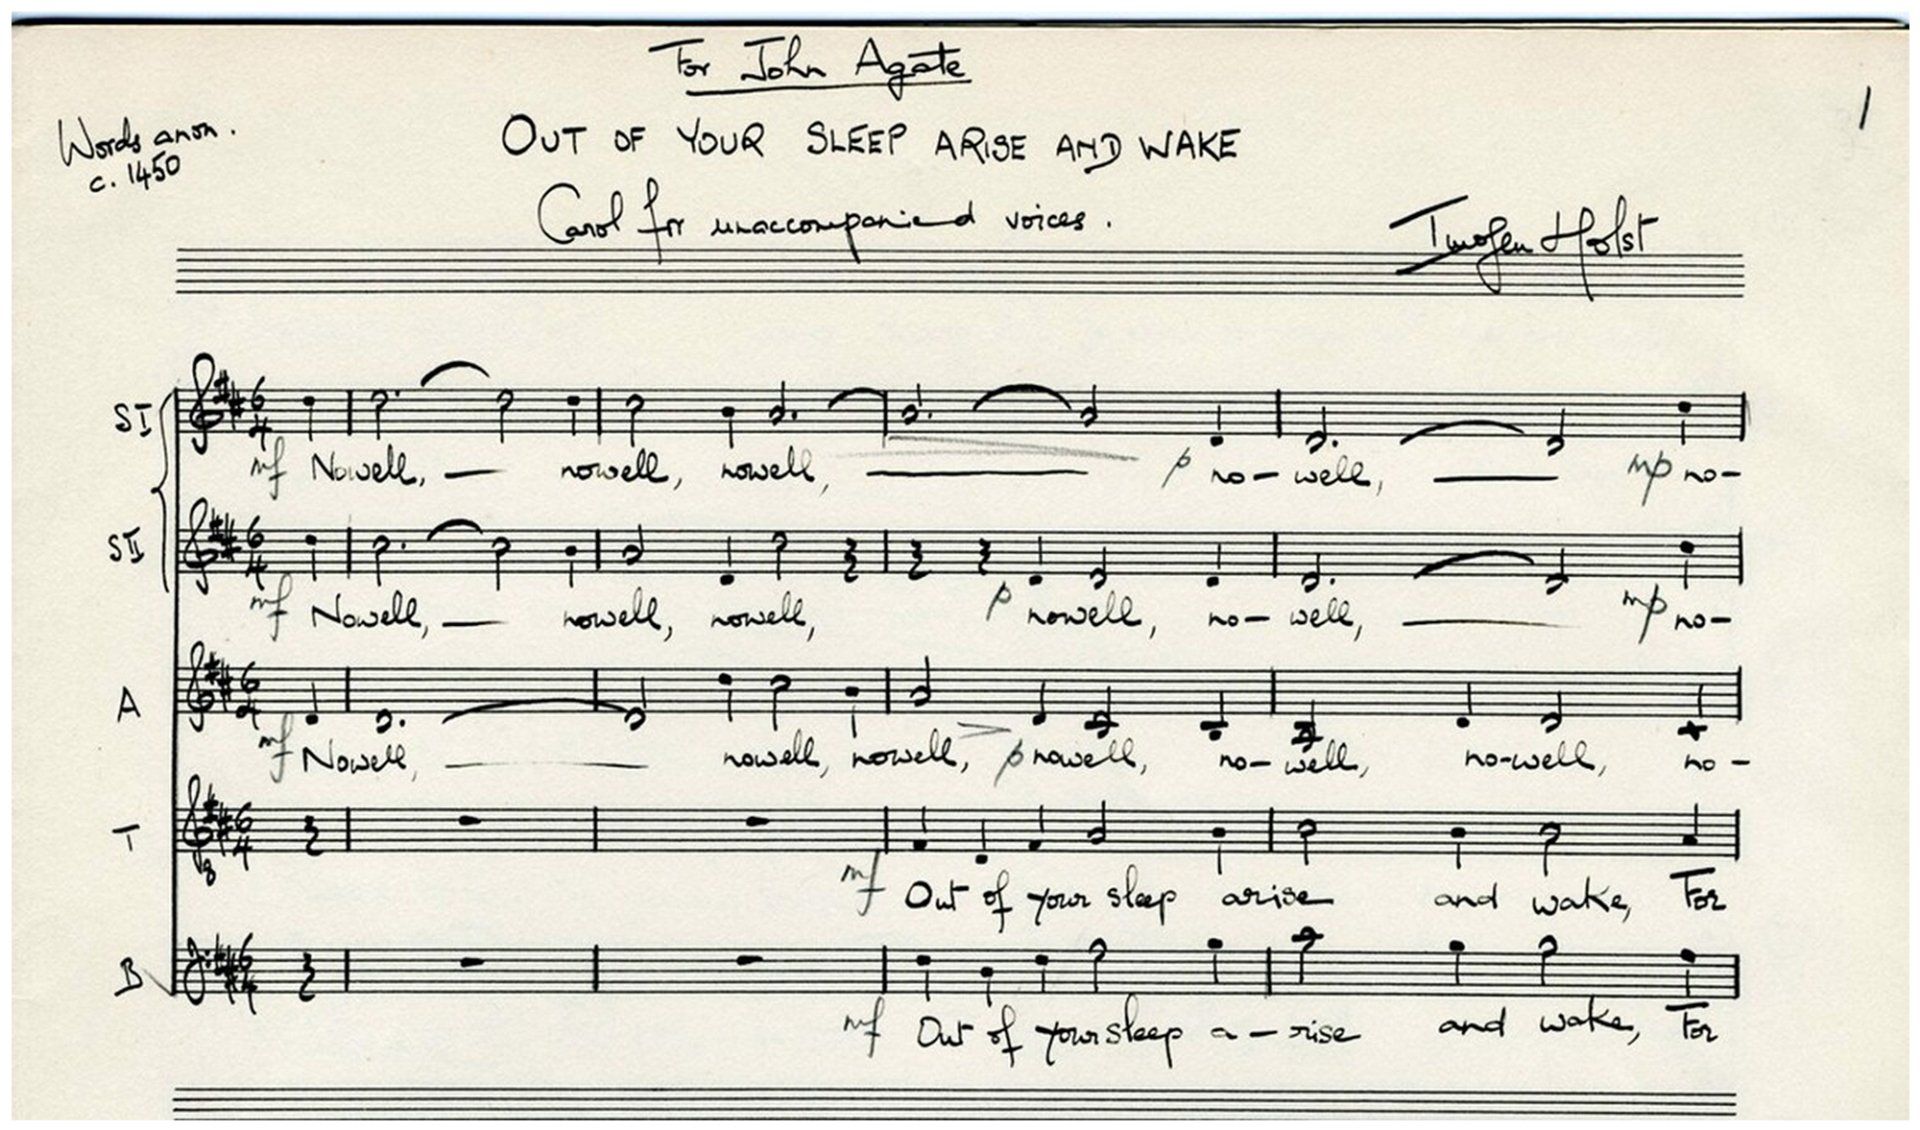 For John Agate
1
Words anon.
c. 1450
OUT OF YOUR SLEEP ARISE AND WAKE
Carol for unaccompanied voices.
Imogen Holst
SI
6
4
mf Nowell, — nowell, nowell, — p no – well, — mp no –
SII
6
4
mf Nowell, — nowell, nowell, p nowell, no – well, — mp no –
A
6
4
mf Nowell, — nowell, nowell, p nowell, no – well, no-well, no –
T
6
4
8
mf Out of your sleep arise and wake, For
B
6
4
mf Out of your sleep a – rise and wake, For